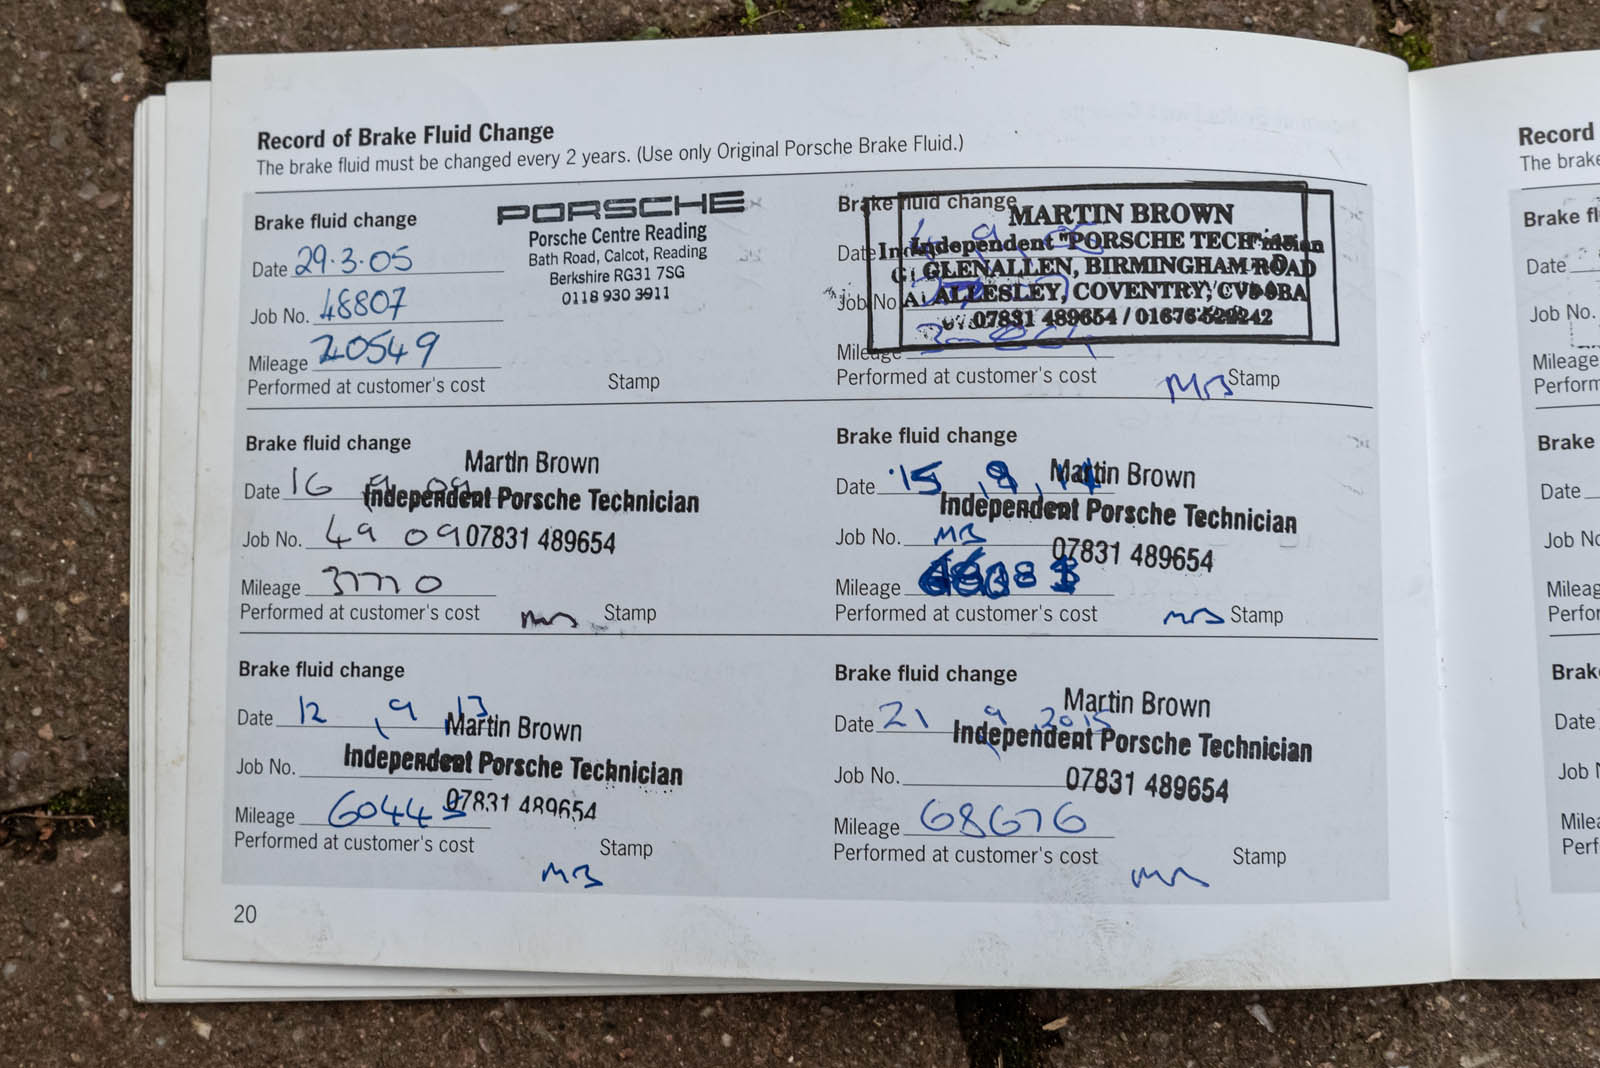 Record of Brake Fluid Change
The brake fluid must be changed every 2 years. (Use only Original Porsche Brake Fluid.)
Brake fluid change
Date 29.3.05
Job No. 48807
Mileage 20549
Performed at customer's cost
Stamp
PORSCHE
Porsche Centre Reading
Bath Road, Calcot, Reading
Berkshire RG31 7SG
0118 930 3911
Brake fluid change
Date
Job No.
Mileage
Performed at customer's cost
MB Stamp
MARTIN BROWN
Independent "PORSCHE
GLENALLEN, BIRMINGHAM ROAD
ALLESLEY, COVENTRY,
07831 489654 / 01676
Brake fluid change
Date 16 9 09
Job No. 49 09
Mileage 37770
Performed at customer's cost
MB Stamp
Martin Brown
Independent Porsche Technician
07831 489654
Brake fluid change
Date 15, 9, 14
Job No. MB
Mileage
Performed at customer's cost
MB Stamp
Martin Brown
Independent Porsche Technician
07831 489654
Brake fluid change
Date 12, 9, 13
Job No.
Mileage 60445
Performed at customer's cost
Stamp
MB
Martin Brown
Independent Porsche Technician
07831 489654
Brake fluid change
Date 21 9, 2015
Job No.
Mileage 68676
Performed at customer's cost
Stamp
MB
Martin Brown
Independent Porsche Technician
07831 489654
20
Record
The brake
Brake fl
Date
Job No.
Mileage
Perform
Brake
Date
Job No
Mileag
Perfor
Brak
Date
Job N
Milea
Perf